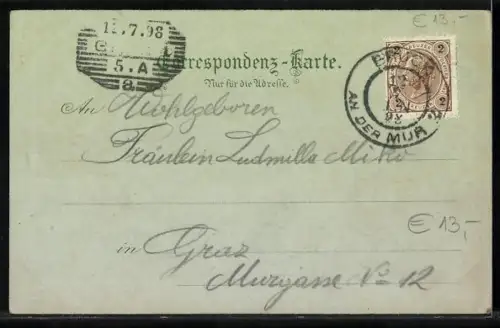 € 13,-
7.98
5.A
a
Correspondenz-Karte.
Nur für die Adresse.
2 2
BRUCK
98
AN DER MUR
An Wohlgeboren
Fräulein Ludmilla
€ 13,-
in Graz
Murgasse No 12